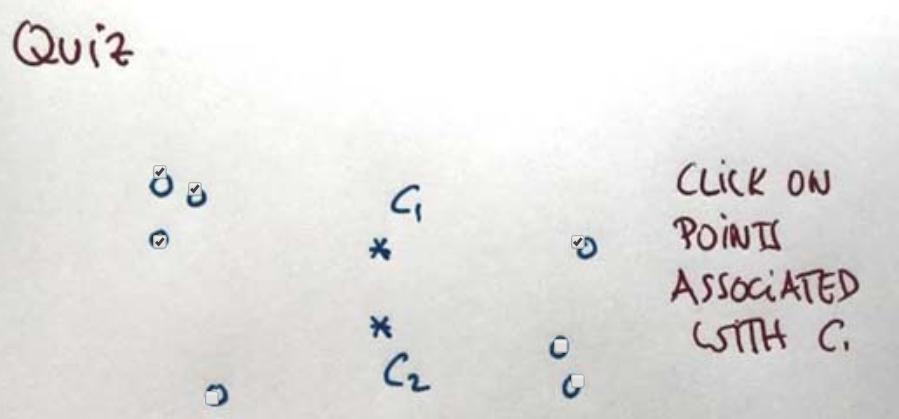 Quiz
C₁
C₂
CLICK ON
POINTS
ASSOCIATED
WITH C₁